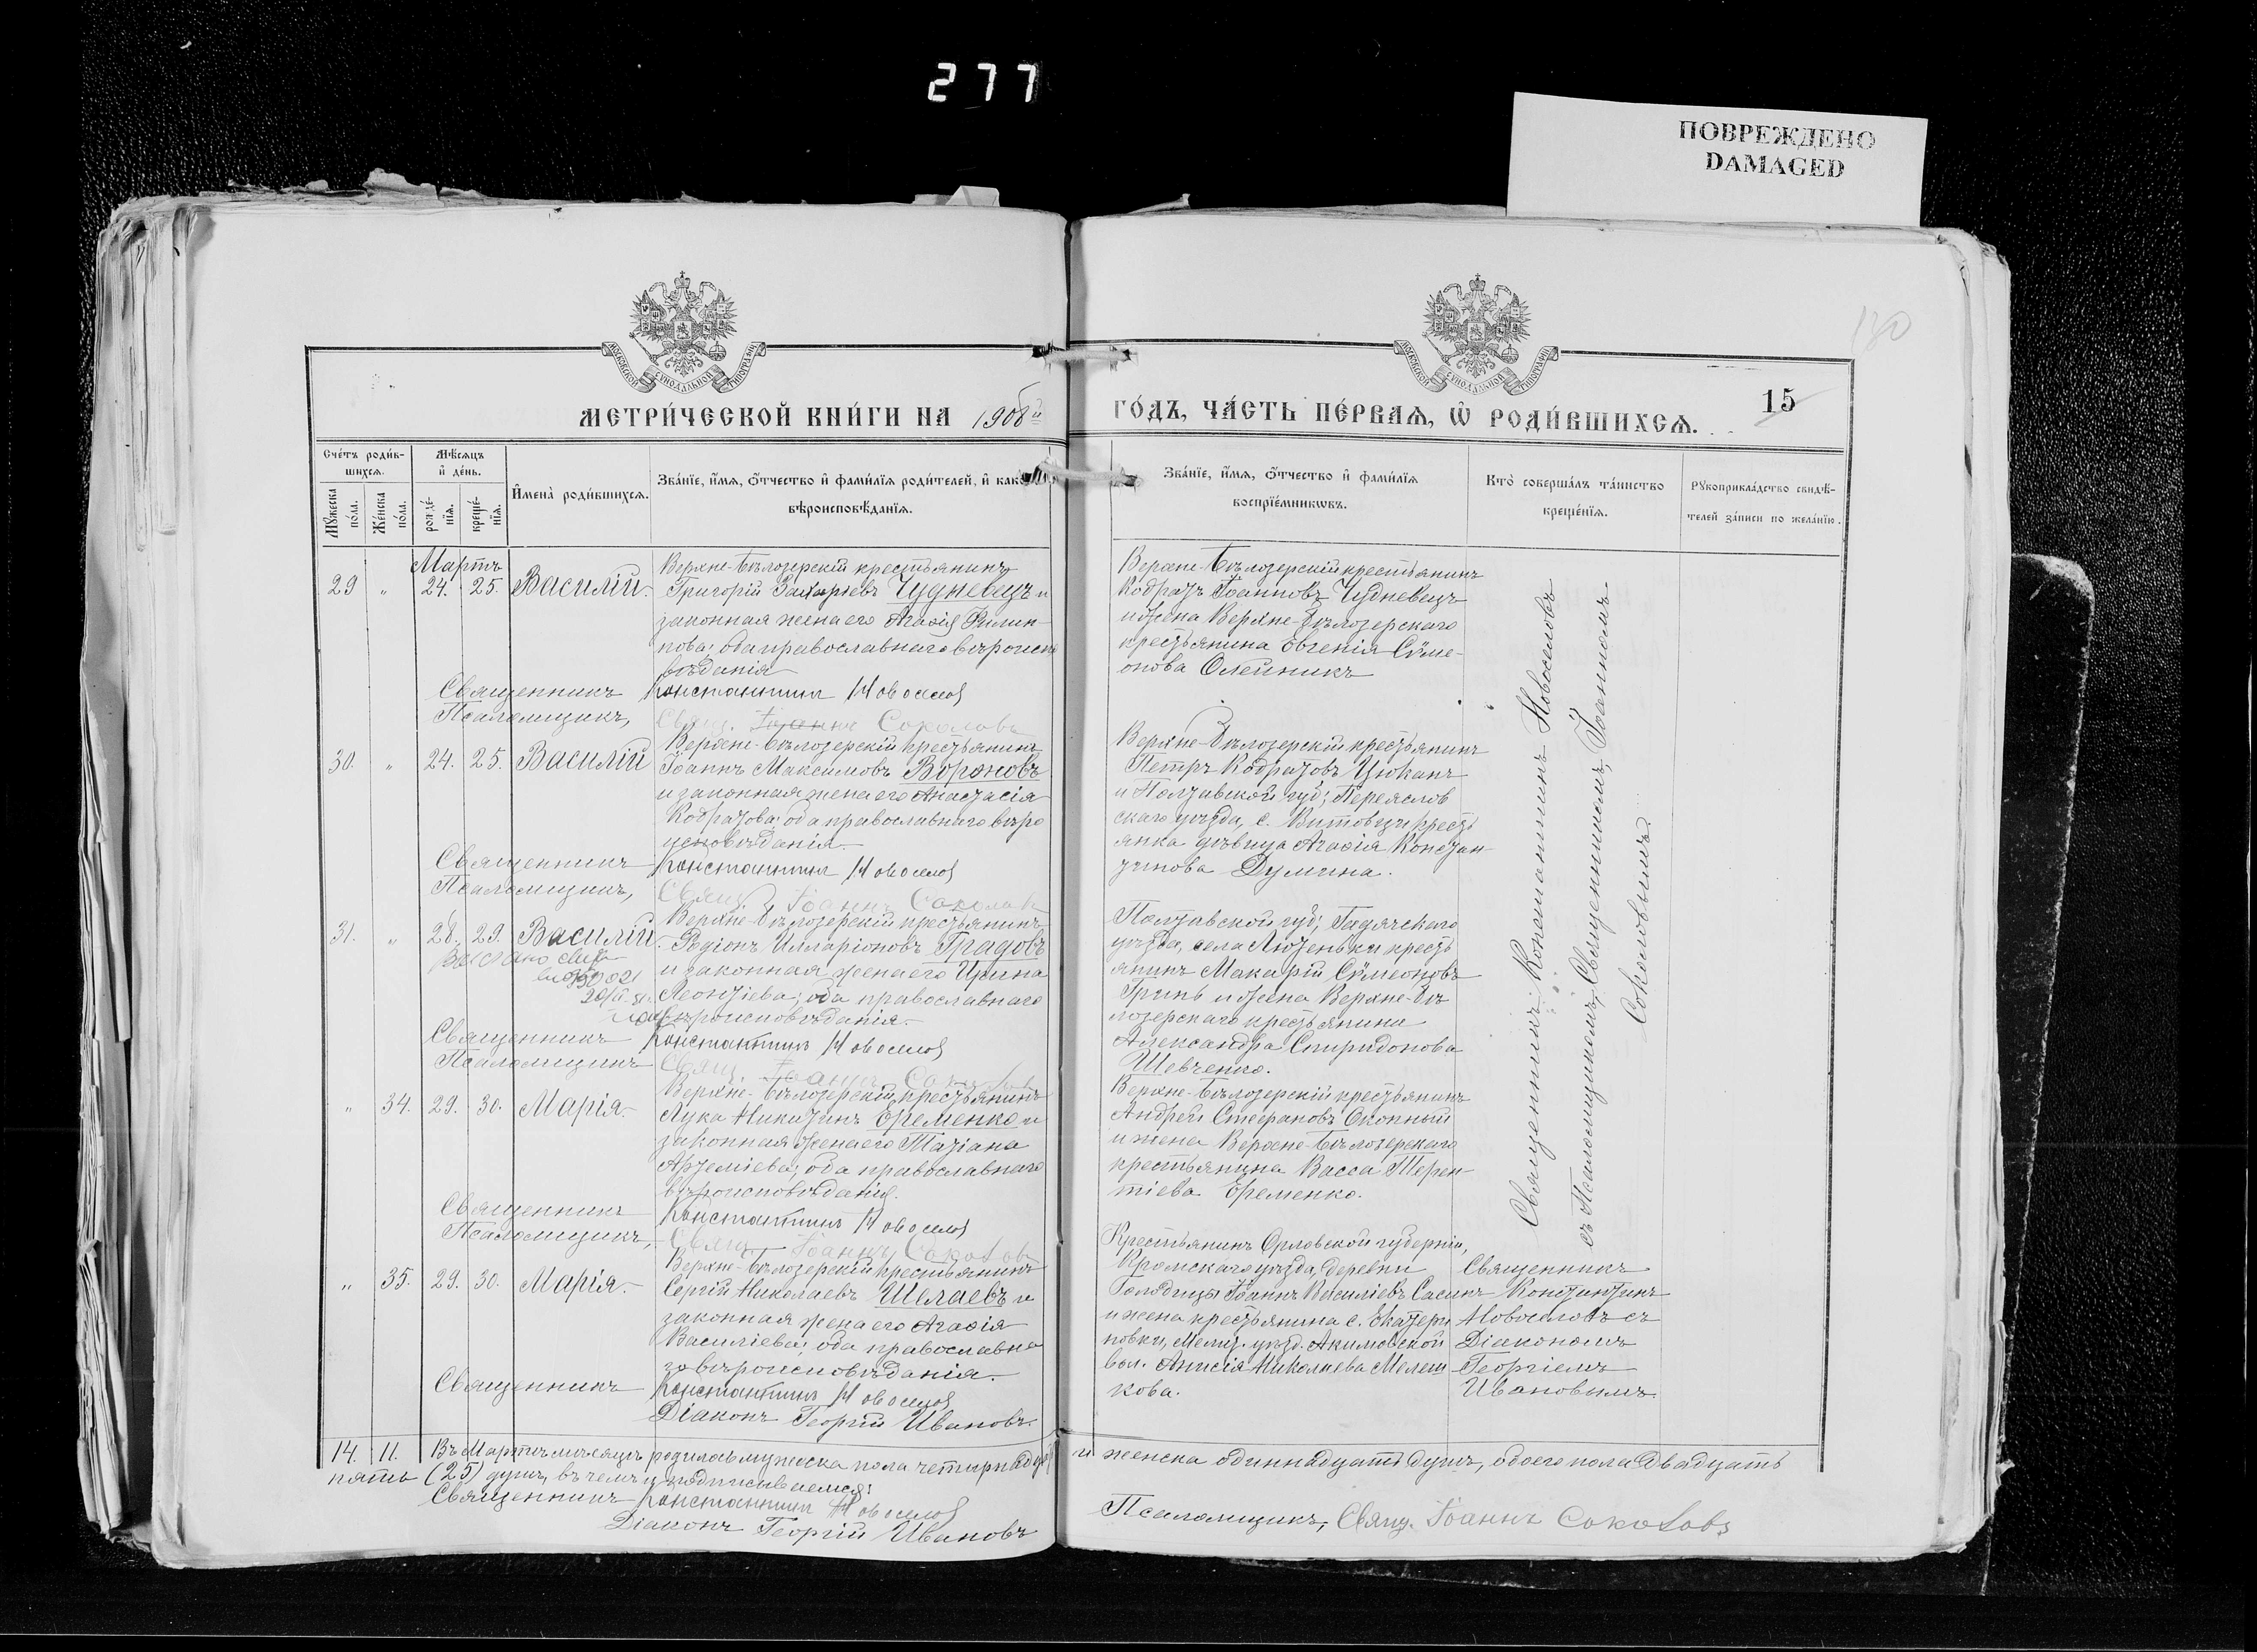 277
ПОВРЕЖДЕНО
DAMAGED
130
15
МОСКОВСКОЙ СУНОДАЛЬНОЙ ТИПОГРАФІИ
МЕТРИ́ЧЕСКОЙ КНИ́ГИ НА 1908й
МОСКОВСКОЙ СУНОДАЛЬНОЙ ТИПОГРАФІИ
ГО́ДЪ, ЧА́СТЬ ПЕ́РВАЯ, Ѿ РОДИ́ВШИХСЯ.
Сче́тъ роди́в-
шихся.
Мꙋ́жеска по́ла.
Же́нска по́ла.
Мѣ́сяцъ и҆ де́нь.
рожде́-
нїѧ.
креще́-
нїѧ.
И҆мена̀ роди́вшихся.
Зва́нїе, и҆́мѧ, ѻ҆́тчество и҆ фами́лїѧ роди́телей, и҆ како
вѣроисповѣ́данїѧ.
Зва́нїе, и҆́мѧ, ѻ҆́тчество и҆ фами́лїѧ
воспрїе́мникѡвъ.
Кто̀ соверша́лъ та́инство
креще́нїѧ.
Рꙋкоприкла́дство свидѣ́-
телей за́писи по жела́нїю.
Мартъ
29 „ 24. 25. Василій.
Верхне-Бѣлозерскій крестьянинъ
Григорій Захаріевъ Чудневецъ и
законная жена его Агаѳія Филип-
пова; оба православнаго вѣроиспо
вѣданія
Священникъ Константинъ Новоселов
Псаломщикъ, Свящ. Іоаннъ Соколовъ
Верхне-Бѣлозерскій крестьянинъ
Кодратъ Іоанновъ Чудневецъ
и жена Верхне-Бѣлозерскаго
крестьянина Евгенія Сѵме-
онова Олейникъ
30. „ 24. 25. Василій
Верхне-Бѣлозерскій крестьянинъ
Іоаннъ Максимовъ Воржовъ
и законная жена его Анастасія
Кодратова; оба православнаго вѣро
исповѣданія.
Священникъ Константинъ Новоселов
Псаломщикъ, Свящ. Іоаннъ Соколов
Верхне-Бѣлозерскій крестьянинъ
Петръ Кодратовъ Цюканъ
и Полтавской губ; Переяслов
скаго уѣзда, с. Витовцы кресть
янка дѣвица Агаѳія Констан-
тинова Думина.
31. „ 28. 29. Василій.
20/II
Верхне-Бѣлозерскій крестьянинъ
Родіонъ Илларіоновъ Градовъ
и законная жена его Ирина
Леонтіева; оба православнаго
вѣроисповѣданія.
Священникъ Константинъ Новоселов
Псаломщикъ Свящ. Іоаннъ Соколов
Полтавской губ; Гадячскаго
уѣзда, села Лютеньки кресть
янинъ Макарій Сѵмеоновъ
Гринь и жена Верхне-Бѣ
лозерскаго крестьянина
Александра Спиридонова
Шевченко.
„ 34. 29. 30. Марія.
Верхне-Бѣлозерскій крестьянинъ
Лука Никитинъ Еременко и
законная жена его Татіана
Артеміева; оба православнаго
вѣроисповѣданія.
Священникъ Константинъ Новоселов
Псаломщикъ, Свящ. Іоаннъ Соколовъ
Верхне-Бѣлозерскій крестьянинъ
Андрей Стефановъ Окопный
и жена Верхне-Бѣлозерскаго
крестьянина Васса Терен-
тіева Еременко.
Священникъ Константинъ Новоселовъ
съ Псаломщикомъ, Священникомъ, Іоанномъ
Соколовымъ
„ 35. 29. 30. Марія.
Верхне-Бѣлозерскій крестьянинъ
Сергій Николаевъ Шелаевъ и
законная жена его Агаѳія
Василіева; оба православна
го вѣроисповѣданія.
Священникъ Константинъ Новоселов
Діаконъ Георгій Ивановъ.
Крестьянинъ Орловской губерніи,
Кромскаго уѣзда, деревни
Іоаннъ Василіевъ Сасинъ
и жена крестьянина с. Екатери
новки, Мелит. уѣзд. Акимовской
вол. Анисія Николаева Мелеш
кова.
Священникъ
Константинъ
Новоселовъ съ
Діакономъ
Георгіемъ
Ивановымъ.
14. 11. Въ Мартѣ мѣсяцѣ родилось мужеска пола четырнадца и женска одиннадцать душъ, обоего пола двадцать
пять (25) душъ, въ чемъ и подписываемся:
Священникъ Константинъ Новоселов
Діаконъ Георгій Ивановъ
Псаломщикъ, Свящ. Іоаннъ Соколовъ